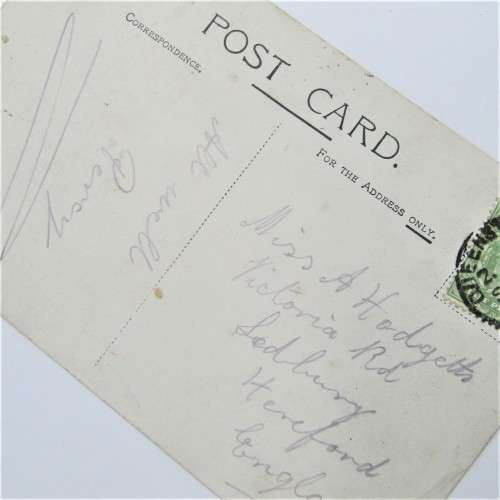 POST CARD.
CORRESPONDENCE.
FOR THE ADDRESS ONLY.
All well
Percy
Miss A Hodgetts
Victoria Rd
Ledbury
Hereford
Engla
QUEENS